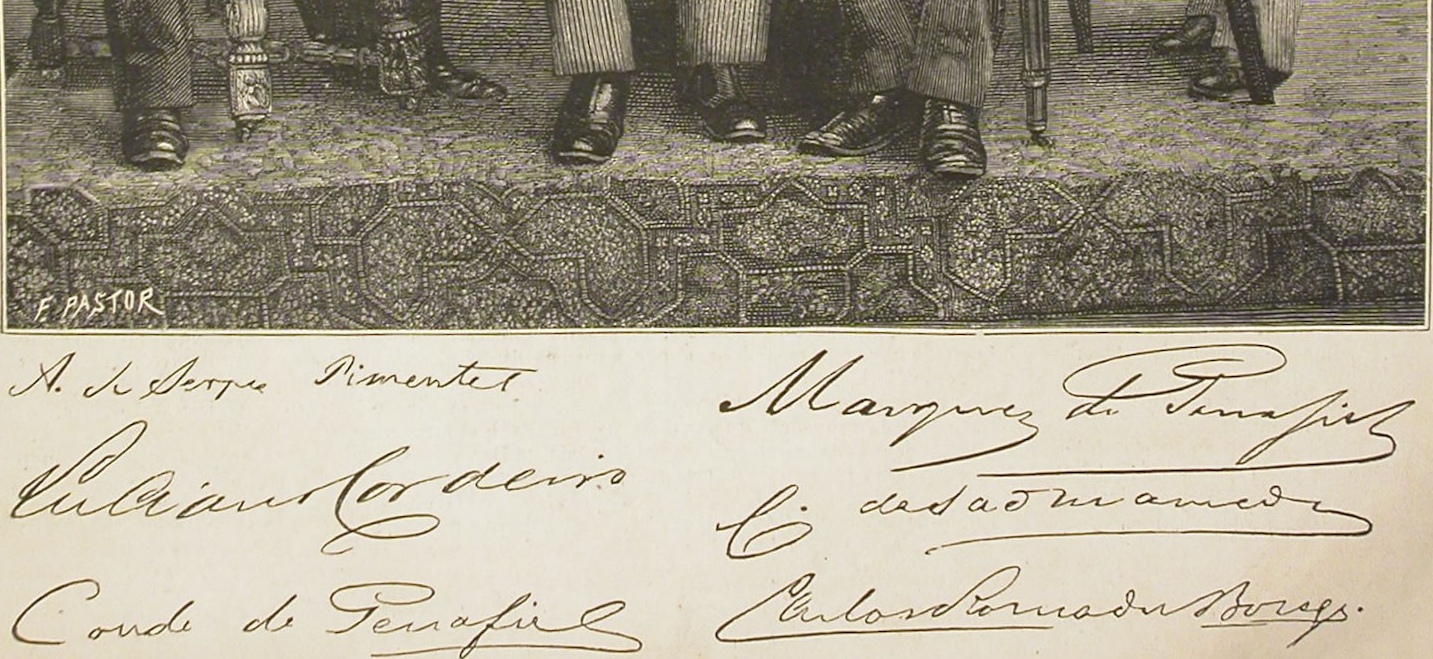 F. PASTOR
A. de Serpa Pimentel
Luciano Cordeiro
Conde de Penafiel
Marquez de Penafiel
C. de Sao Mamede
Carlos Roma du Bocage